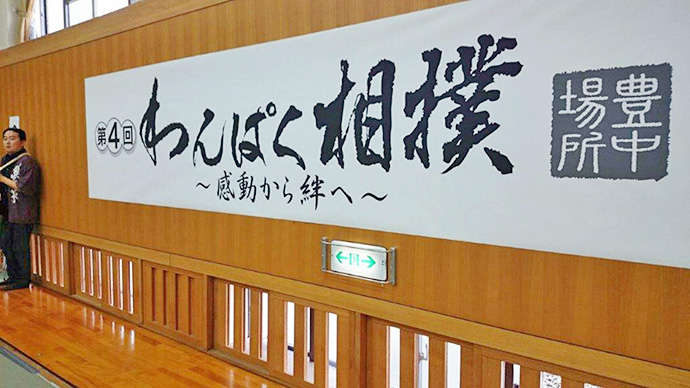 第4回 わんぱく相撲
～感動から絆へ～
豊中
場所